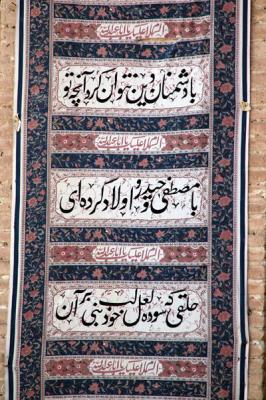 السلام علیک یا اباعبدالله
با دشمنان دین نتوان کرد آنچه تو
السلام علیک یا اباعبدالله
با مصطفی و حیدر و اولاد کرده‌ای
السلام علیک یا اباعبدالله
حلقی که سوده لعل لب خود نبی بر آن
السلام علیک یا اباعبدالله